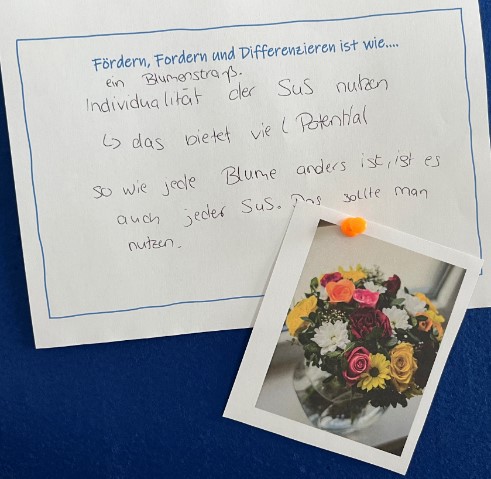 Fördern, Fordern und Differenzieren ist wie....
ein Blumenstrauß.
Individualität der SuS nutzen
↳ das bietet viel Potential
so wie jede Blume anders ist, ist es
auch jeder SuS. Das sollte man
nutzen.